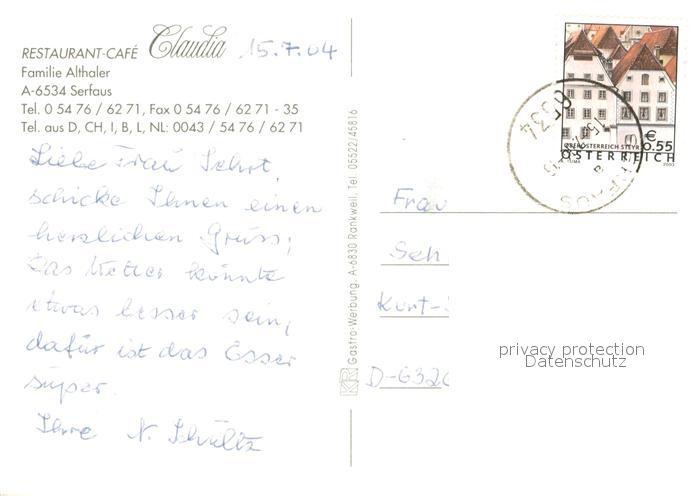 RESTAURANT-CAFÉ Claudia 15.7.04
Familie Althaler
A-6534 Serfaus
Tel. 0 54 76 / 62 71, Fax 0 54 76 / 62 71 - 35
Tel. aus D, CH, I, B, L, NL: 0043 / 54 76 / 62 71
Liebe Frau Sehrt,
schicke Ihnen einen
herzlichen Gruss;
Das Wetter könnte
etwas besser sein,
dafür ist das Essen
super.
Ihre N. Schultz
KR Gastro-Werbung, A-6830 Rankweil, Tel. 05522/45816
€ 0.55
OBERÖSTERREICH STEYR
ÖSTERREICH
2003
6534
Frau
Seh
Kurt-
D-6326
privacy protection
Datenschutz